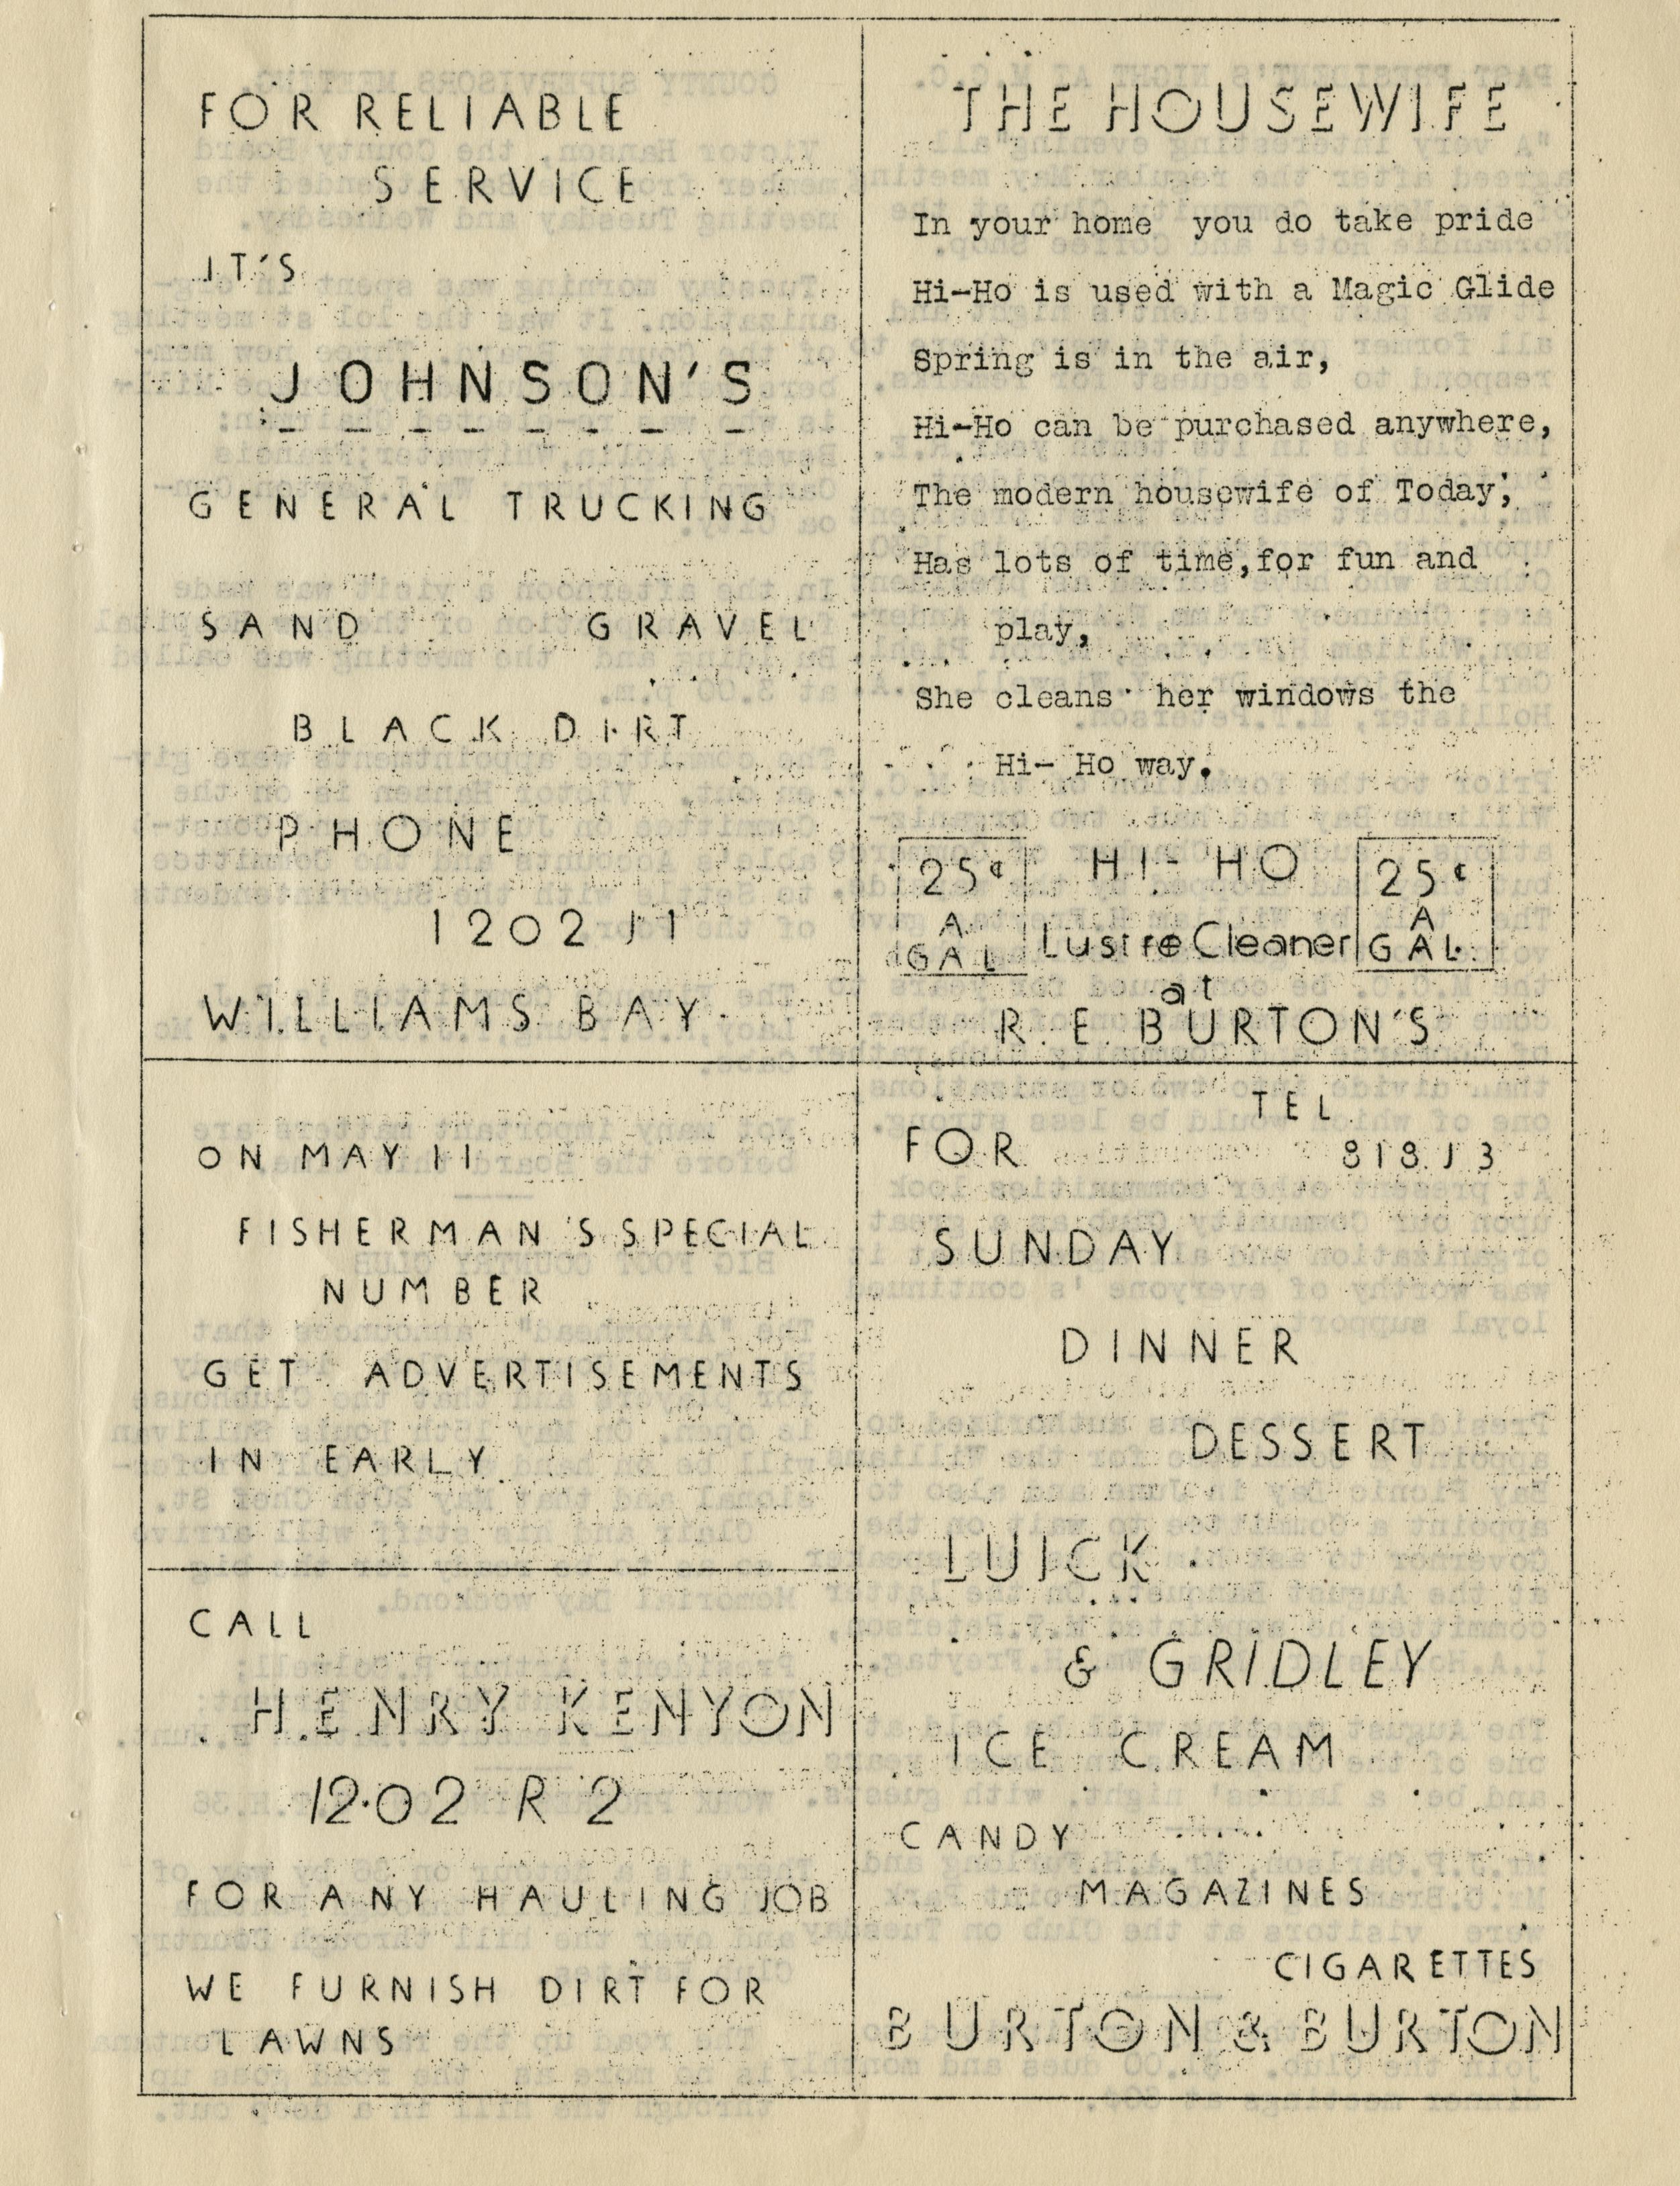 FOR RELIABLE
SERVICE
IT'S
JOHNSON'S
GENERAL TRUCKING
SAND GRAVEL
BLACK DIRT
PHONE
1202 J1
WILLIAMS BAY
THE HOUSEWIFE
In your home you do take pride
Hi-Ho is used with a Magic Glide
Spring is in the air,
Hi-Ho can be purchased anywhere,
The modern housewife of Today,
Has lots of time,for fun and
play,
She cleans her windows the
Hi- Ho way.
25¢ HI-HO 25¢
A A
GAL Lustre Cleaner GAL
at
R. E. BURTON'S
ON MAY 11
FISHERMAN'S SPECIAL
NUMBER
GET ADVERTISEMENTS
IN EARLY
CALL
HENRY KENYON
1202 R 2
FOR ANY HAULING JOB
WE FURNISH DIRT FOR
LAWNS
TEL
FOR 818 J 3
SUNDAY
DINNER
DESSERT
LUICK
& GRIDLEY
ICE CREAM
CANDY
MAGAZINES
CIGARETTES
BURTON & BURTON